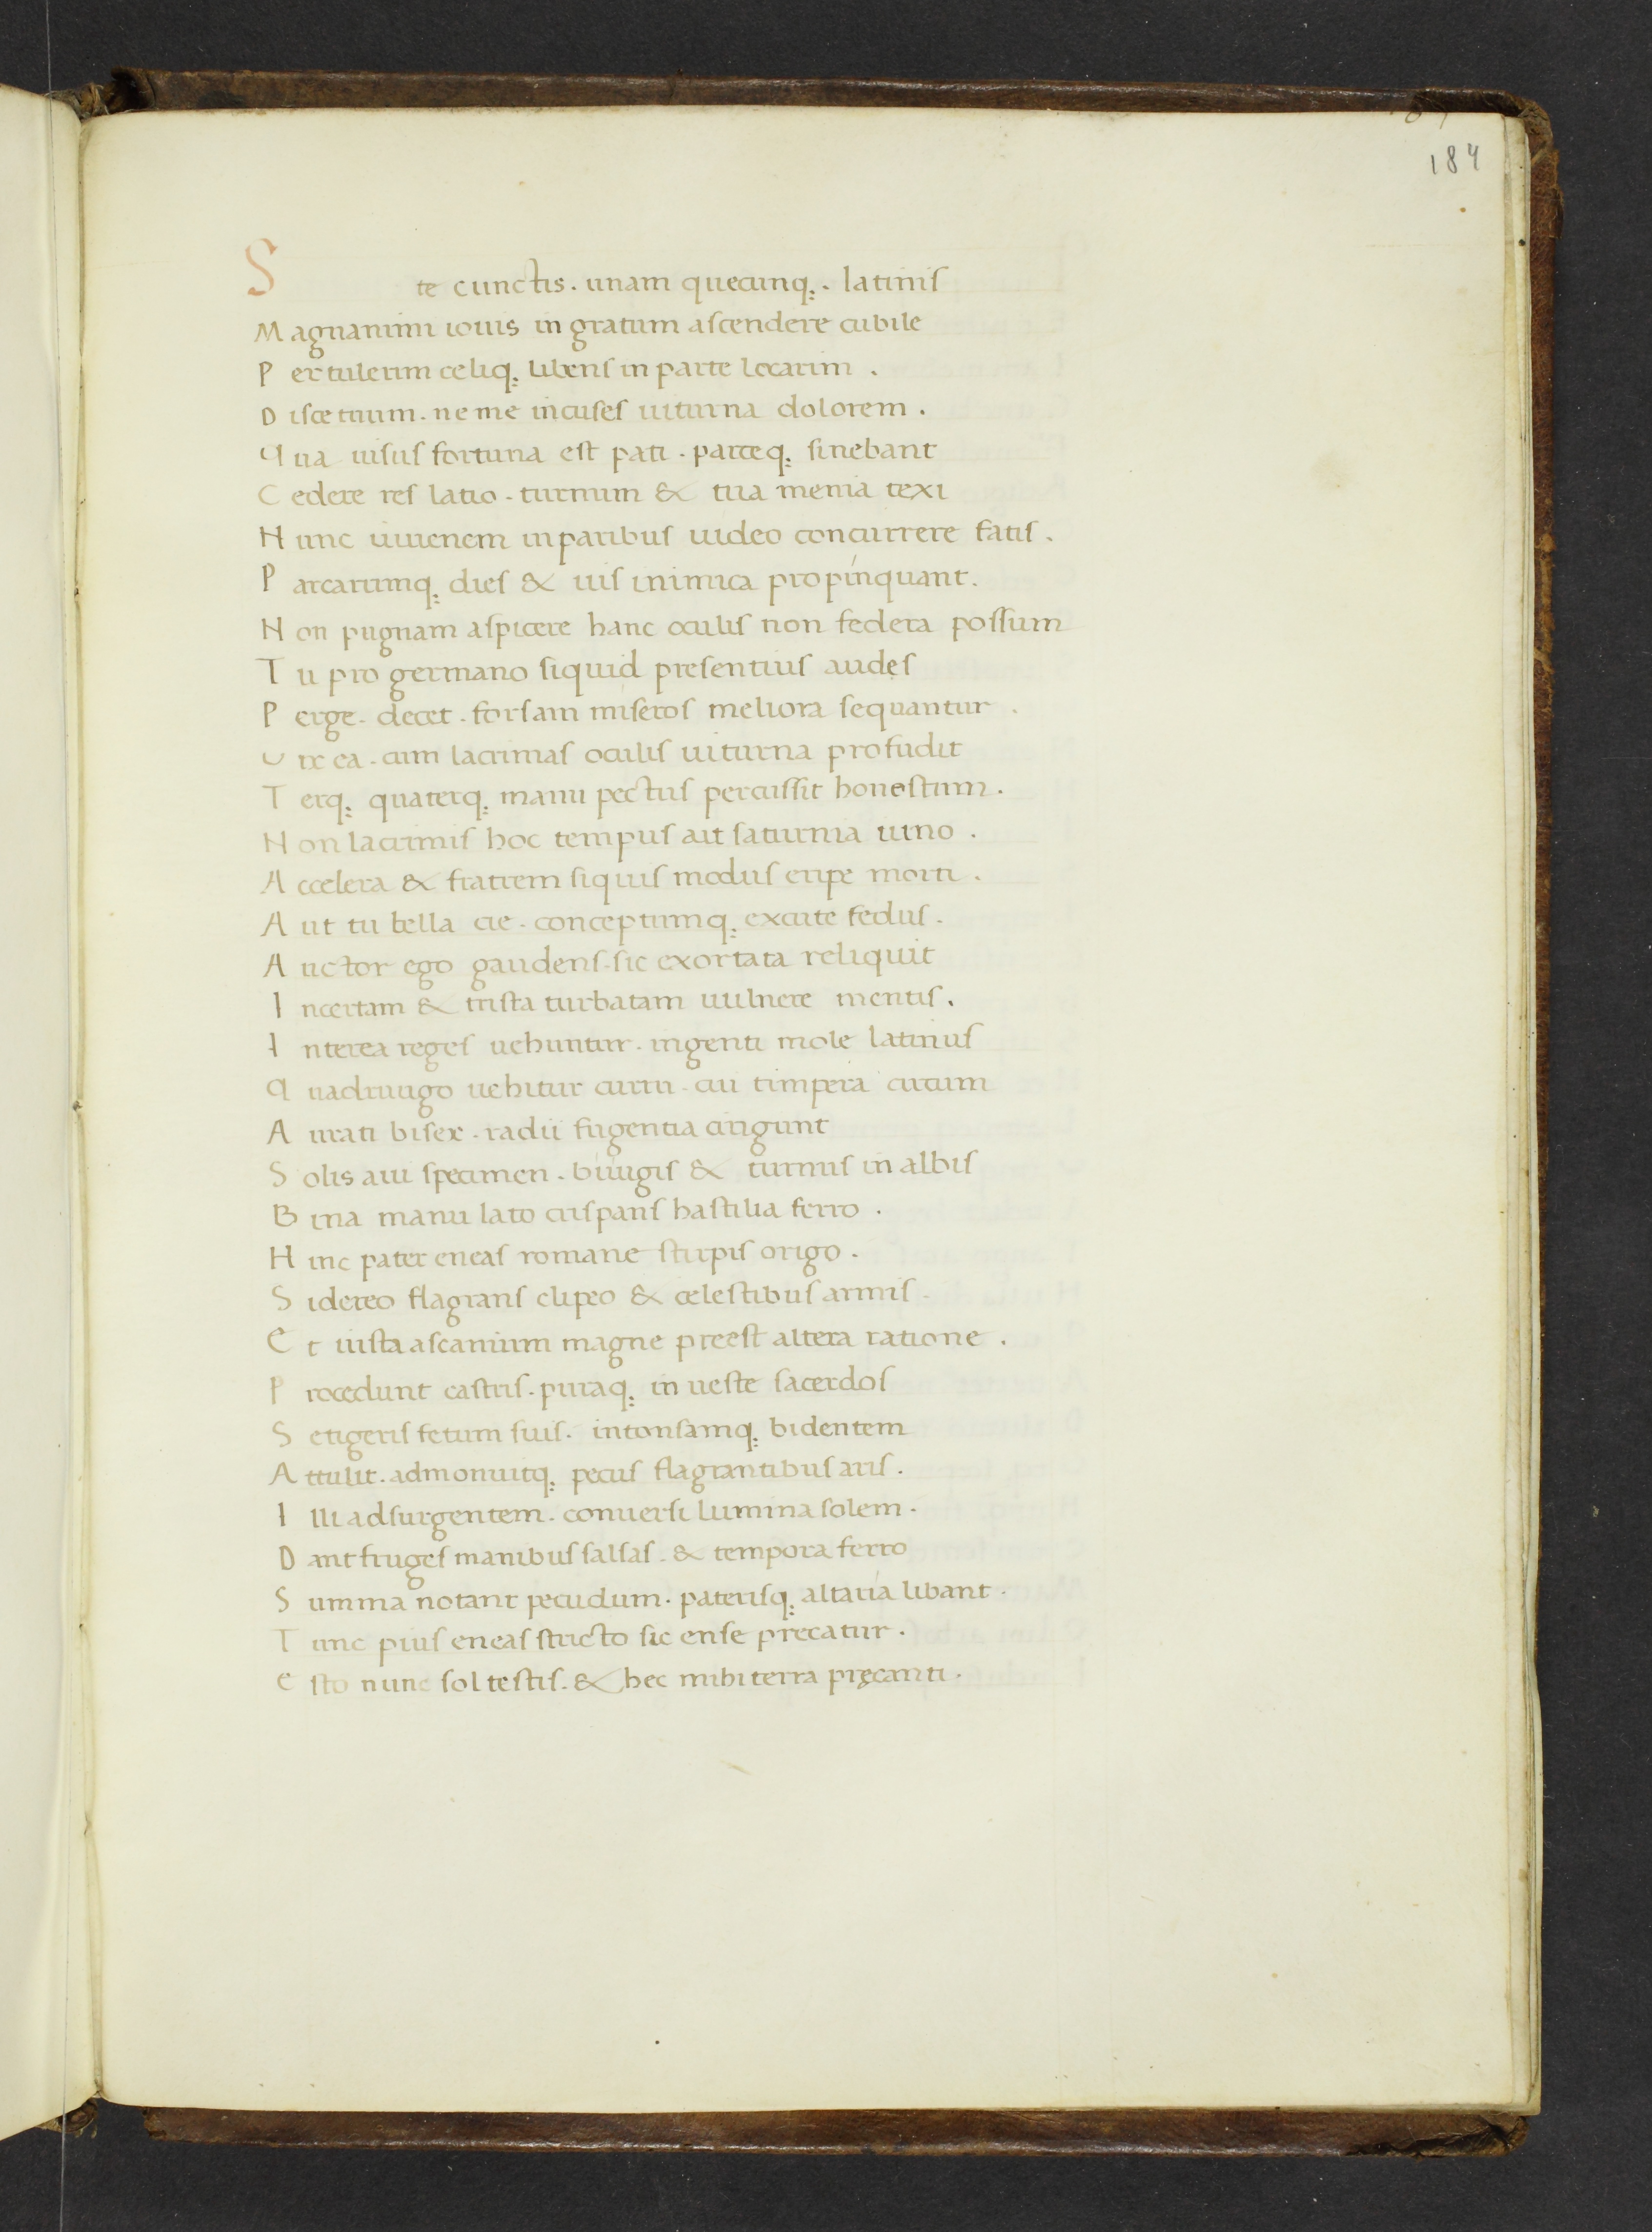 184
S te cunctis. unam quecunq;. latinis
Magnanimi iouis in gratum ascendere cubile
Pertulerim celiq; libens in parte locarim.
Disce tuum. ne me incuses uiturna dolorem.
Qua uisus fortuna est pati. parceq; sinebant
Cedere res latio. turnum & tua menia texi
Nunc iuuenem inparibus uideo concurrere fatis.
Parcarumq; dies & uis inimica propinquant.
Non pugnam aspicere hanc oculis non federa possum
Tu pro germano siquid presentius audes
Perge. decet. forsam miseros meliora sequantur.
Uix ea. cum lacrimas oculis uiturna profudit
Terq; quaterq; manu pectus percussit honestum.
Non lacrimis hoc tempus ait saturnia iuno.
Accelera & fratrem siquis modus eripe morti.
Aut tu bella cie. conceptumq; excute fedus.
Auctor ego gaudens. sic exortata reliquit
Incertam & trista turbatam uulnere mentis.
Interea reges uehuntur. ingenti mole latinus
Quadriuugo uehitur curru. cui timpera circum
Aurati bisex. radii fugentia cingunt
Solis aui specimen. biuigis & turnus in albis
Bina manu lato crispans hastilia ferro.
Hinc pater eneas romane stirpis origo.
Sidereo flagrans clipeo & celestibus armis.
Et iusta ascanium magne preest altera ratione.
Procedunt castris. puraq; in ueste sacerdos
Setigeris fetum suis. intonsamq; bidentem
Attulit. admonuitq; pecus flagrantibus aris.
Illi ad surgentem. conuersi lumina solem.
Dant fruges manibus salsas. & tempora ferro
Summa notant pecudum. paterisq; altaria libant.
Tunc pius eneas stricto sic ense precatur.
Esto nunc sol testis. & hec mihi terra pręcanti.